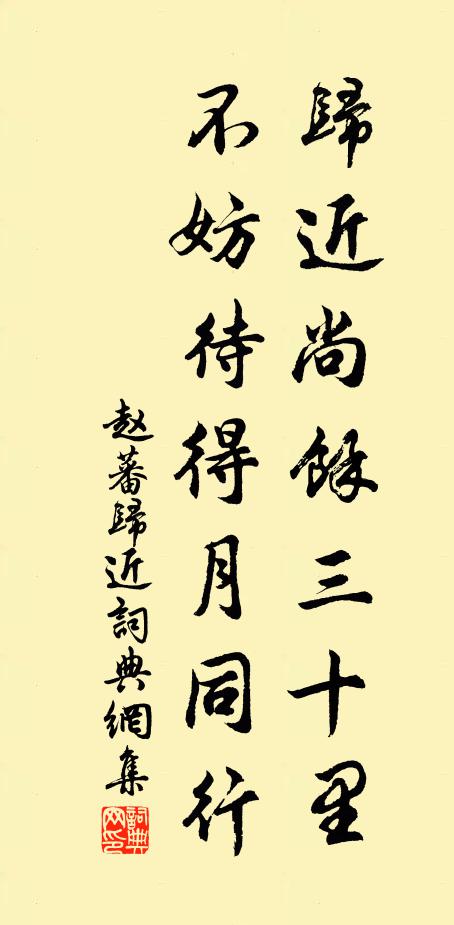 歸近尚餘三十里
不妨待得月同行
赵蕃歸近詞典網集
詞典網印